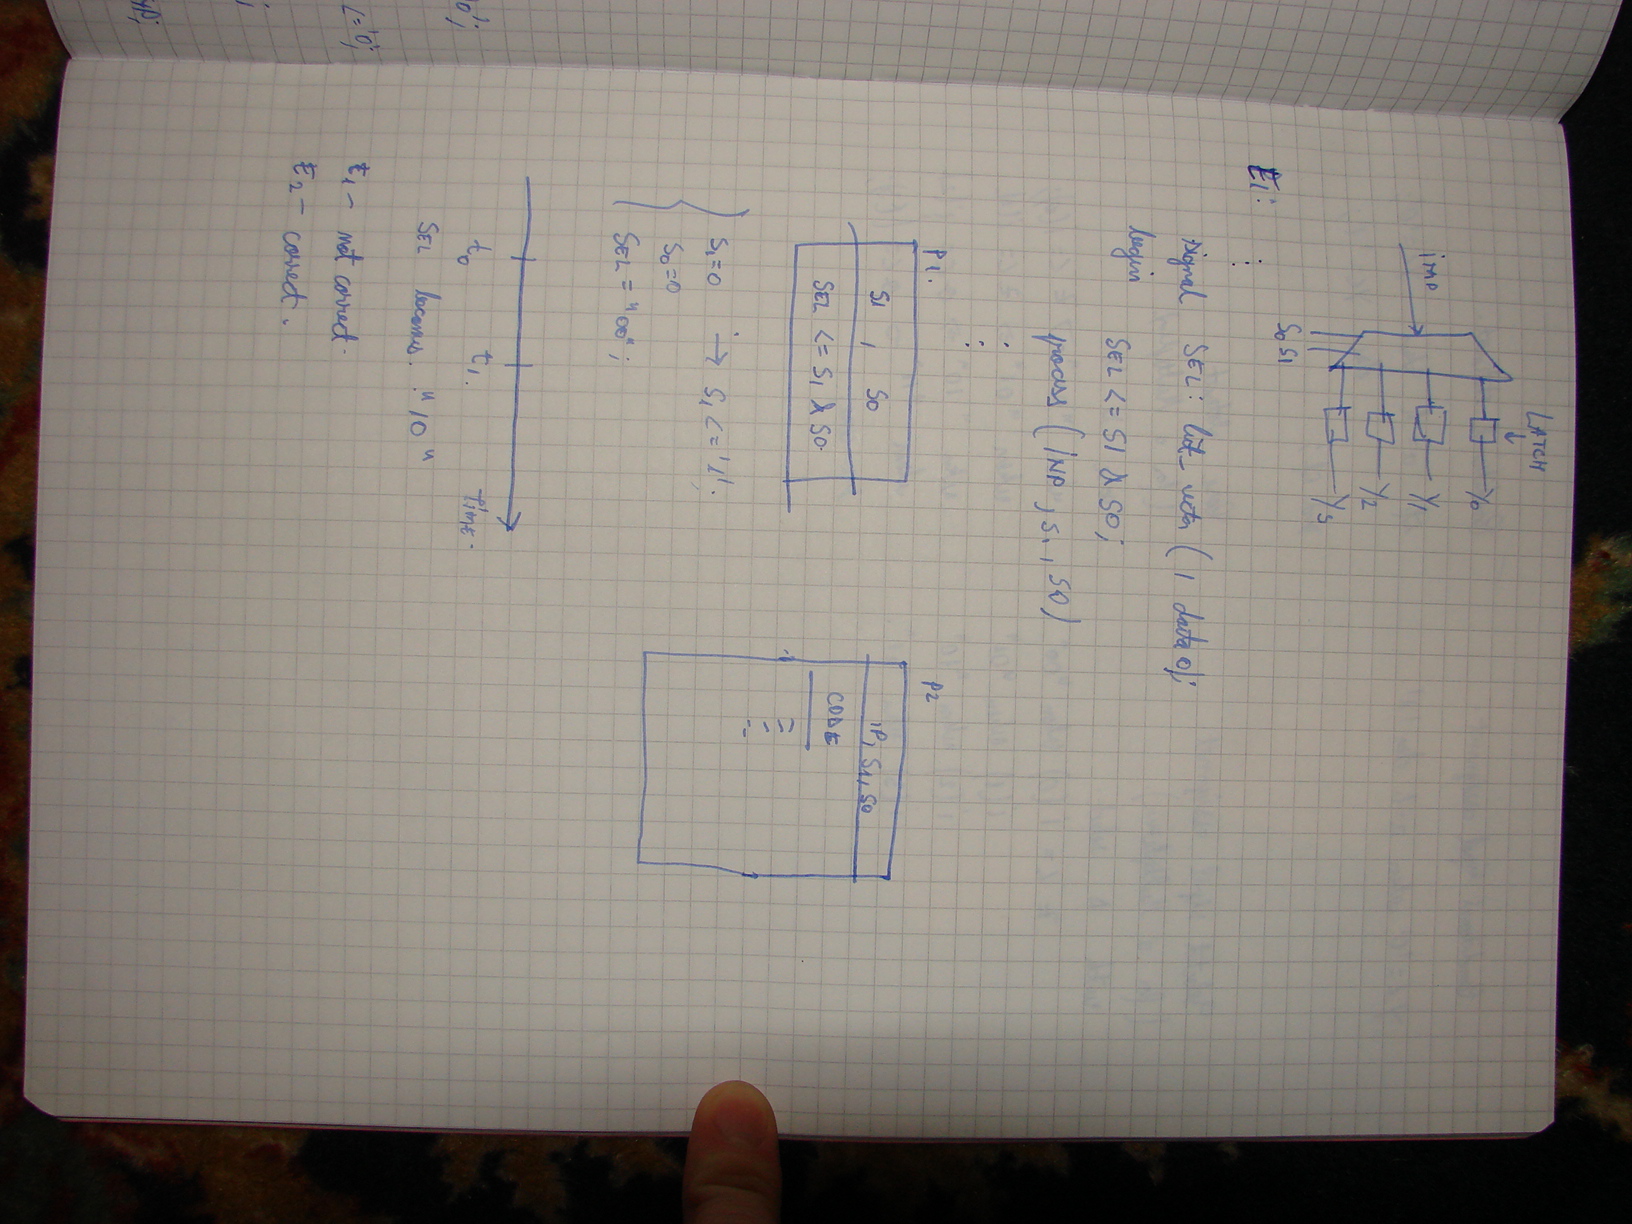 LATCH
inp
Y0
Y1
Y2
Y3
S0 S1
E1:
signal SEL: bit_vector (1 data 0);
begin
SEL <= S1 & S0;
process (INP, S1, S0)
P1.
S1 , S0
SEL <= S1 & S0.
P2
iP, S1, S0
CODE
S1=0 → S1 <= '1';
S0=0
SEL = "00";
t0 t1. Time.
SEL becomes "10"
E1 - not correct.
E2 - correct.
L='0';